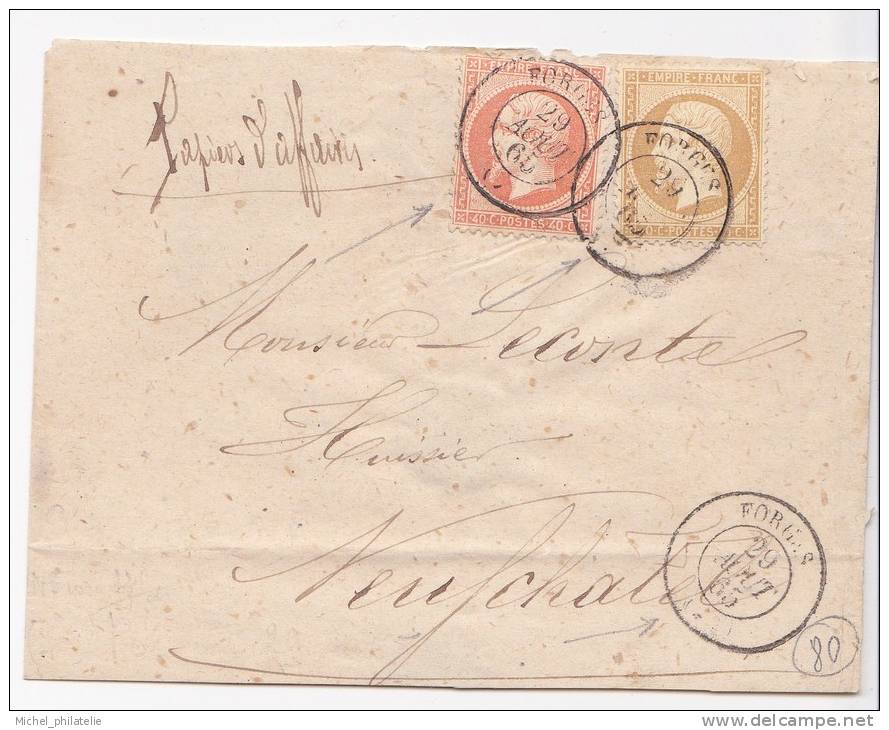 Papiers d'affaires
EMPIRE FRANC
40·C·POSTES·40·C
EMPIRE·FRANC·
10·C·POSTES·10·C
FORGES
29
AOUT
65
FORGES
29
65
Monsieur Leconte
Huissier
Neufchatel
FORGES
29
AOUT
65
80
Michel_philatelie
delcampe.net